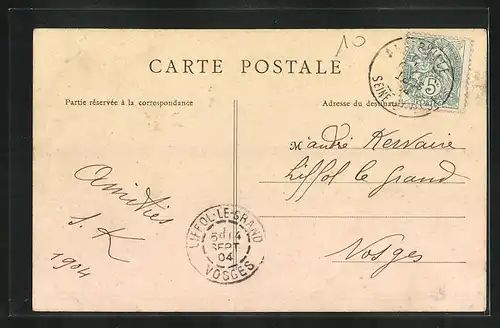 10
CARTE POSTALE
Partie réservée à la correspondance
Adresse du destinataire
5
SEINE
M andré Kervaire
Liffol le Grand
Vosges
Amitiés
S. K
1904
LIFFOL-LE-GRAND
5 4
SEPT
04
VOSGES